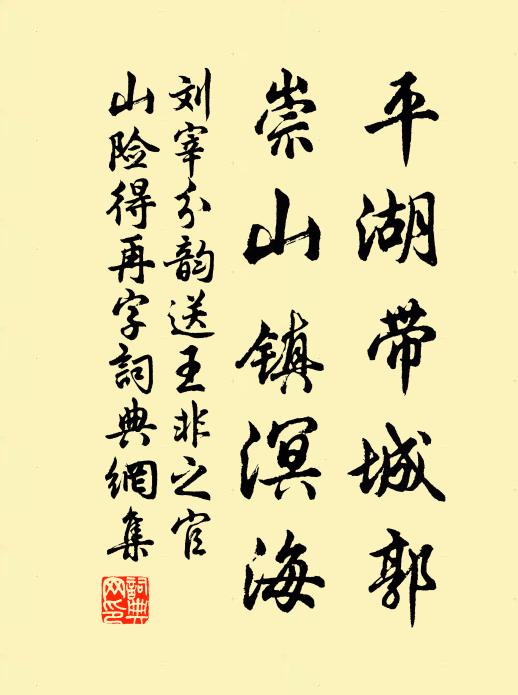 平湖带城郭
崇山镇溟海
刘宰分韵送王非之官
山险得再字詞典網集
詞典網印